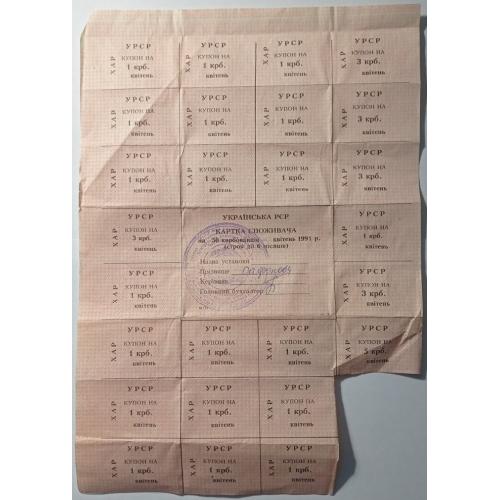 УРСР УРСР УРСР УРСР
ХАР КУПОН НА ХАР КУПОН НА ХАР КУПОН НА ХАР КУПОН НА
1 крб. 1 крб. 1 крб. 3 крб.
квітень квітень квітень квітень
УРСР УРСР УРСР УРСР
ХАР КУПОН НА ХАР КУПОН НА ХАР КУПОН НА ХАР КУПОН НА
1 крб. 1 крб. 1 крб. 3 крб.
квітень квітень квітень квітень
УРСР УРСР УРСР УРСР
ХАР КУПОН НА ХАР КУПОН НА ХАР КУПОН НА ХАР КУПОН НА
1 крб. 1 крб. 1 крб. 3 крб.
квітень квітень квітень квітень
УРСР
ХАР КУПОН НА
3 крб.
квітень
УКРАЇНСЬКА РСР
КАРТКА СПОЖИВАЧА
на 50 карбованців квітень 1991 р.
(строк до 6
Назва установи
Прізвище
Керівник
Головний бухгалтер
УРСР
ХАР КУПОН НА
1 крб.
квітень
УРСР
ХАР КУПОН НА
1 крб.
квітень
УРСР
ХАР КУПОН НА
3 крб.
квітень
УРСР УРСР УРСР УРСР
ХАР КУПОН НА ХАР КУПОН НА ХАР КУПОН НА ХАР КУПОН НА
1 крб. 1 крб. 1 крб. крб.
квітень квітень квітень квітень
УРСР УРСР УРСР
ХАР КУПОН НА ХАР КУПОН НА ХАР КУПОН НА
1 крб. 1 крб. 1 крб.
квітень квітень квітень
УРСР УРСР УРСР
ХАР КУПОН НА ХАР КУПОН НА ХАР КУПОН НА
1 крб. 1 крб. 1 крб.
квітень квітень квітень